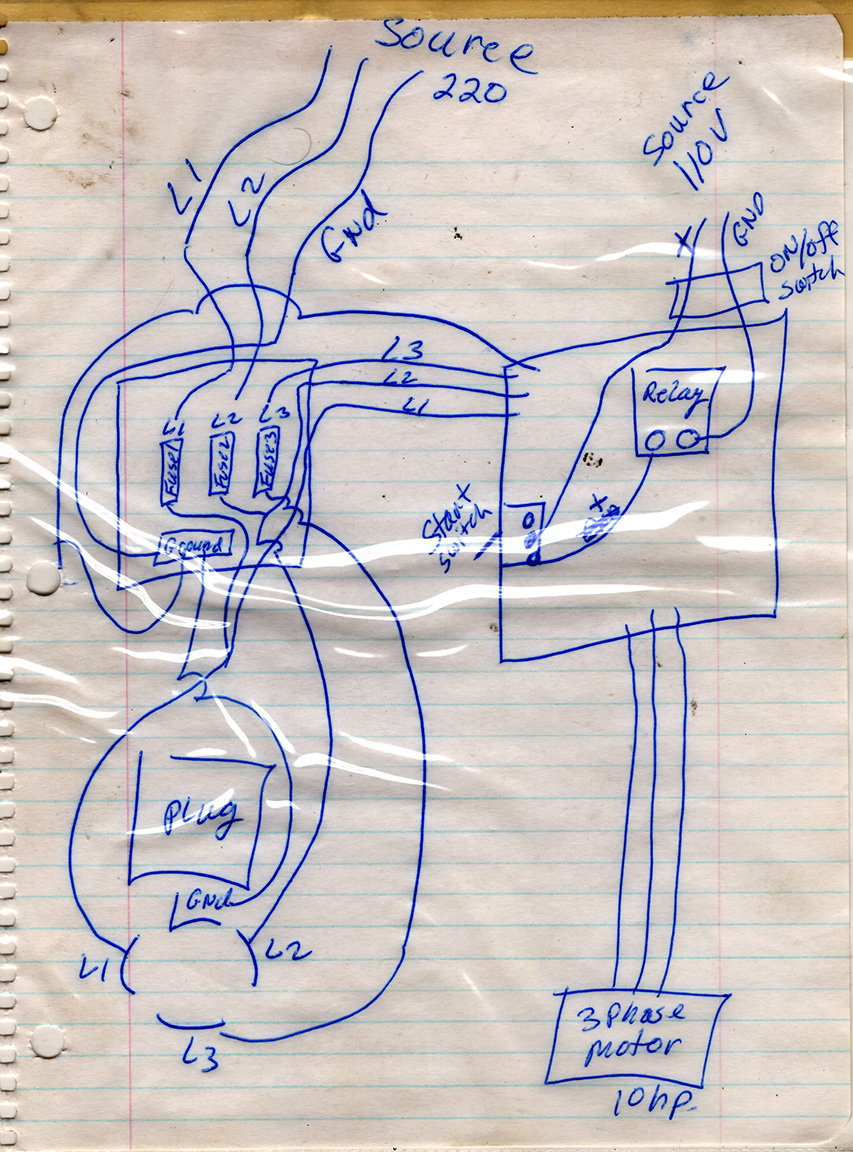 Source
220
Source
110V
L1
L2
Gnd
+
GND
ON/off
Switch
L3
L2
L1
Relay
L1
L2
L3
Fuse1
Fuse2
Fuse3
Ground
Start
Switch
+
Plug
GNd
L1
L2
L3
3 Phase
motor
10 hp.